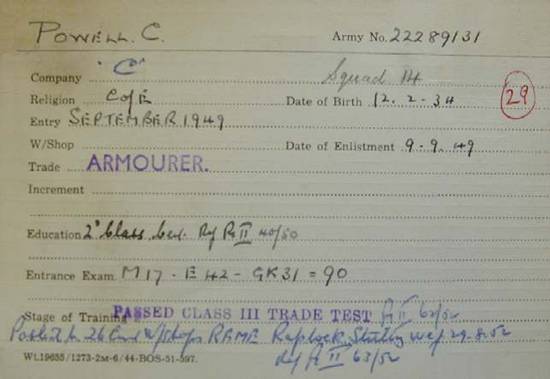 POWELL. C. Army No. 22289131
Company "C" Squad 14
Religion C of E Date of Birth 12. 2 - 34 29
Entry SEPTEMBER 1949
W/Shop Date of Enlistment 9 - 9. 49
Trade ARMOURER.
Increment
Education 2° Class Cert. Ref Pt II 40/50
Entrance Exam. M17 - E 42 - GK31 = 90
Stage of Training PASSED CLASS III TRADE TEST Pt II 62/52
Posted to 26 W/Shops REME Raplock Stirling wef 29.8.52
WL19655/1273-2M-6/44-BOS-51-597. Ref Pt II 63/52